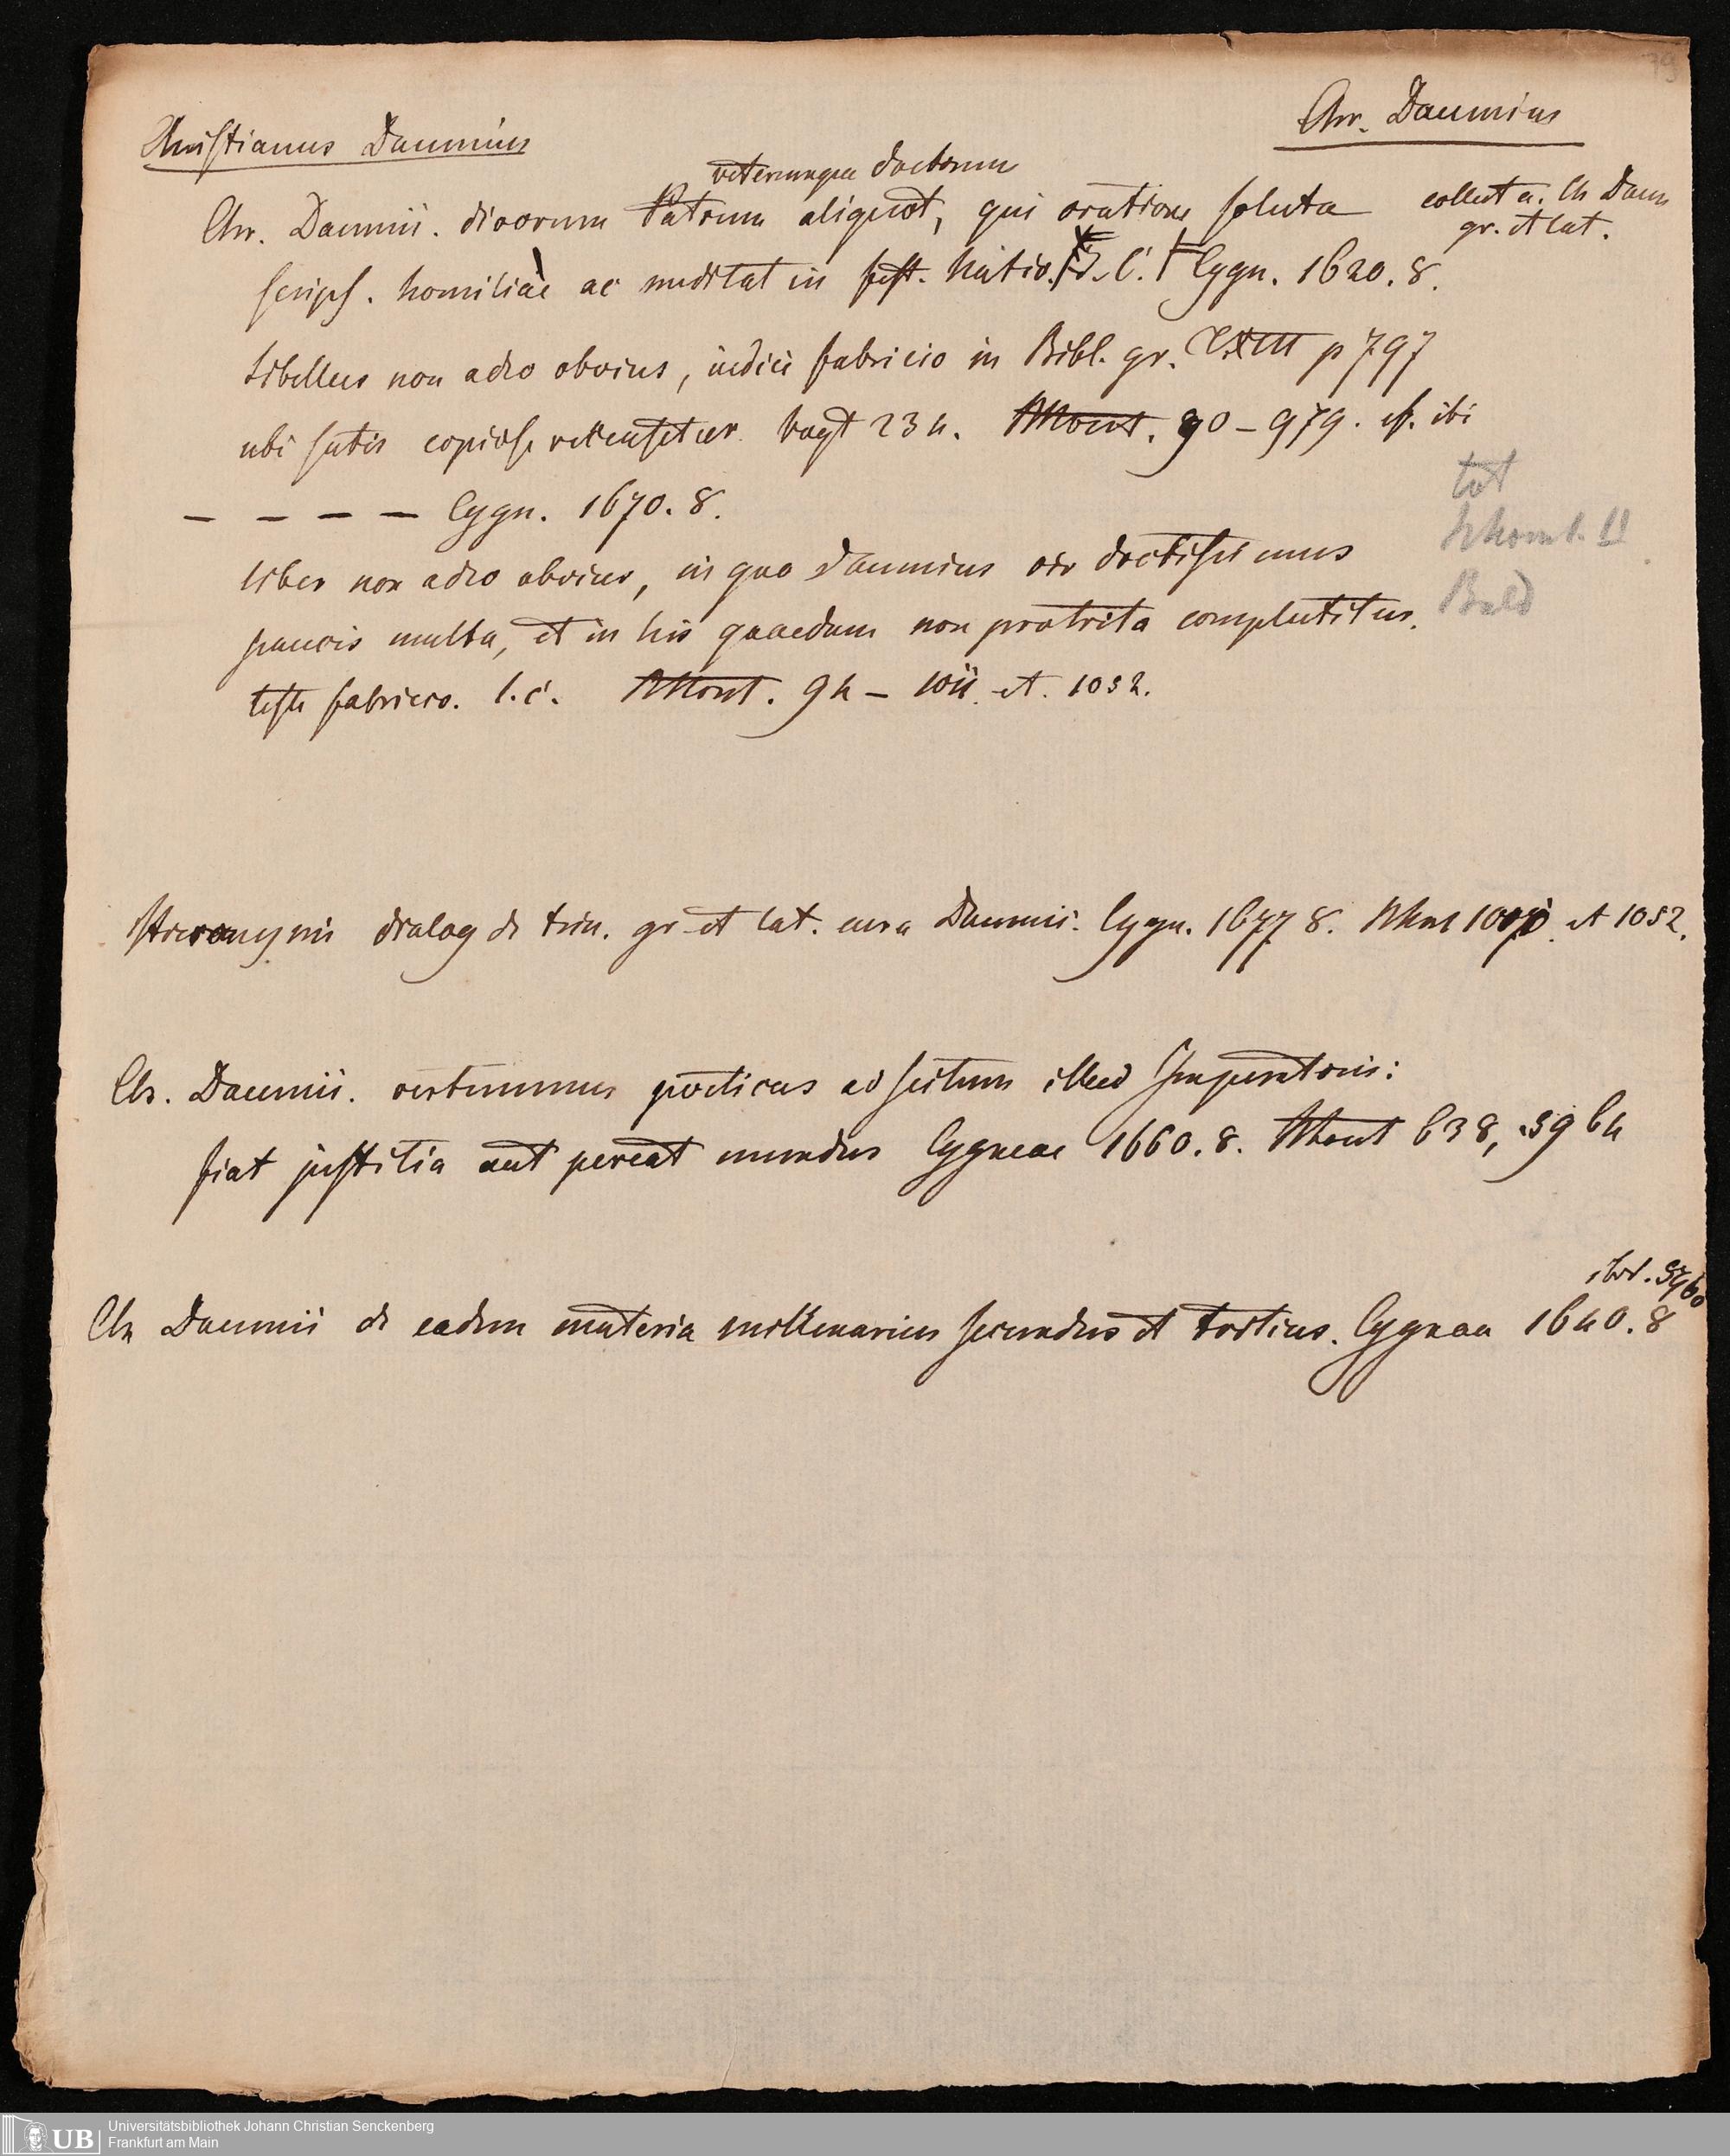 79
Chr. Daumius
Christianus Daumius
veterumque doctorum
Chr. Daumii. divorum Patrum aliquot, qui oratione soluta
collect a. Ch Daum
gr. et lat.
scrips. homiliae ac meditat in fest. Nativ. J. C. Cygn. 1620. 8.
Libellus non adeo obvius, judice fabricio in Bibl. gr. XIII p 797
ubi satis copiose recensetur. Vogt 234. Mont. 90 – 979. ibi
– – – – Cygn. 1670. 8.
liber non adeo obvius, in quo Daumius vir doctissimus
paucis multa, et in his quaedam non protrita complectitur.
teste fabricio. l. c. Mont. 94 – et. 1032.
tot
Bald
Hieronymi dialog de trin. gr et lat. cura Daumii. Cygn. 1677 8. et 1052.
Ch. Daumii. vertumnus poeticus ad scitum illud Imperatoris:
fiat justitia aut pereat mundus Cygneae 1660. 8. Mont 638, 5964
ibid. 5960
Ch Daumii de eadem materia millenarius secundus et tertius. Cygnea 1640. 8
UB
Universitätsbibliothek Johann Christian Senckenberg
Frankfurt am Main